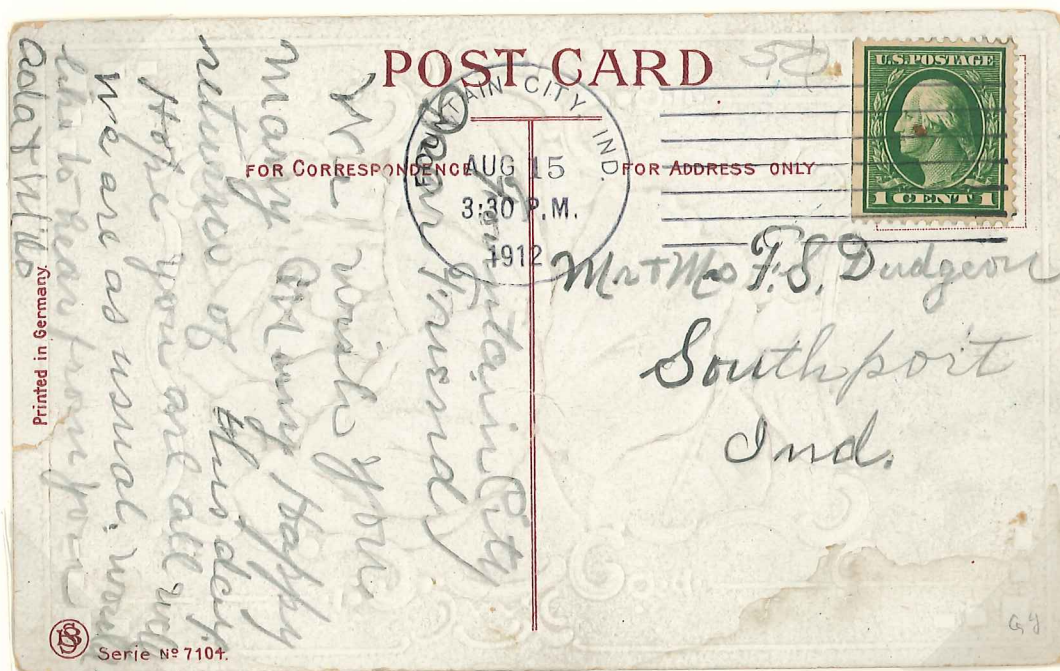 POST CARD
FOR CORRESPONDENCE
FOR ADDRESS ONLY
U.S. POSTAGE
1 CENT 1
TAIN CITY, IND.
AUG 15
3:30 P.M.
1912
Mr & Mrs F. S. Dudgeon
Southport
Ind.
Fountain City
Dear Friends
We wish you
Many Many Happy
returns of this day.
Hope you are all well
we are as usual. would
like to hear from you
Printed in Germany.
Serie No 7104.